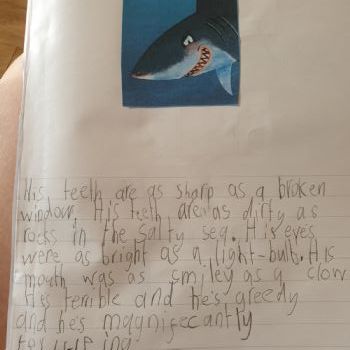 His teeth are as sharp as a broken
window. His teeth are as dirty as
rocks in the salty sea. His eyes
were as bright as a light-bulb. His
mouth was as smiley as a clow
He's terrible and he's greedy
and he's magnifecantly